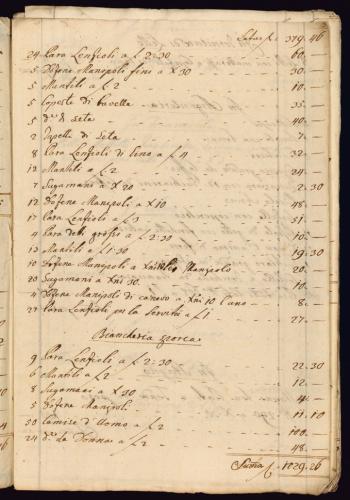 Latus £ 379.46
24 Para Lenzioli a £ 2:30 60.—
5 Dosene Manepoli fini a X 30 30.—
5 Mantili a £ 2 10.—
5 Coperte di bavella 35.—
5 d.e di seta 40.—
2 Tapetti di Seta 7.—
8 Para Lenzioli di Lino a £ 4 32.—
12 Mantili a £ 2 24.—
7 Sugamani a X 20 2.30
12 Dosene Manepoli a X 10 48.—
17 Para Lenzioli a £ 3 51.—
4 Para detti grossi a £ 2:30 10.—
13 Mantili a £ 1:30 19.30
10 Dosene Manepoli a 20.—
20 Sugamani a Xni 30 10.—
4 Dosene Manepoli di canevo a Xni 10 l'uno 8.—
27 Para Lenzioli per la Servitù a £ 1 27.—
Biancheria sporca
9 Para Lenzioli a £ 2:30 22.30
6 Mantili a £ 2 12.—
8 Sugamani a X 30 4.—
5 Dosene Manepoli 11.10
50 Camise d'Uomo a £ 2 100.—
24 d.e da Donna a £ 2 48.—
Suma £ 1029.26